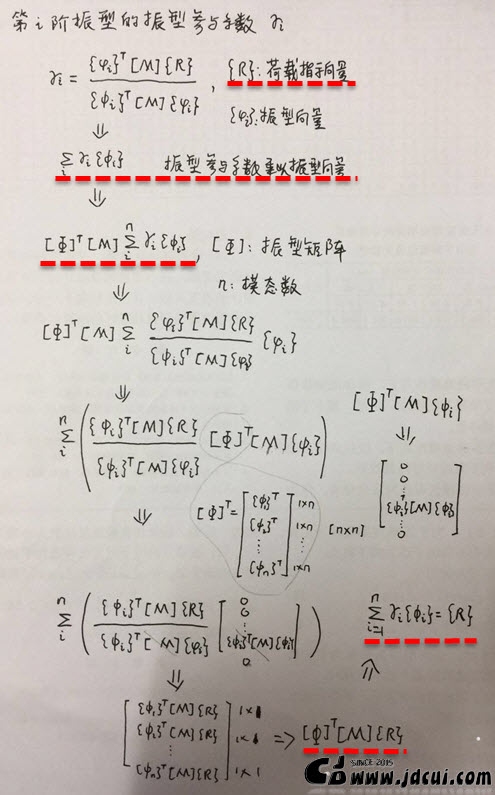 第i阶振型的振型参与系数 γi
γi = {φi}ᵀ[M]{R} / {φi}ᵀ[M]{φi} , {R}: 荷载指示向量
{φi}: 振型向量
⇓
∑i γi{φi} 振型参与系数乘以振型向量
⇓
[Φ]ᵀ[M] ∑i^n γi{φi} , [Φ]: 振型矩阵
n: 模态数
⇓
[Φ]ᵀ[M] ∑i^n {φi}ᵀ[M]{R} / {φi}ᵀ[M]{φi} {φi}
⇓
∑i^n ( {φi}ᵀ[M]{R} / {φi}ᵀ[M]{φi} [Φ]ᵀ[M]{φi} )
[Φ]ᵀ[M]{φi}
⇓
[0 0 ⋮ {φi}ᵀ[M]{φi} ⋮ 0]
⇓
[Φ]ᵀ = [ {φ1}ᵀ {φ2}ᵀ ⋮ {φn}ᵀ ] 1×n 1×n ⋮ 1×n [n×n]
∑i^n ( {φi}ᵀ[M]{R} / {φi}ᵀ[M]{φi} [0 0 ⋮ {φi}ᵀ[M]{φi} ⋮ 0] )
∑i=1^n γi{φi} = {R}
⇑
⇓
[ {φ1}ᵀ[M]{R} {φ2}ᵀ[M]{R} ⋮ {φn}ᵀ[M]{R} ] 1×1 1×1 1×1 => [Φ]ᵀ[M]{R}
SINCE 2015
www.jdcui.com